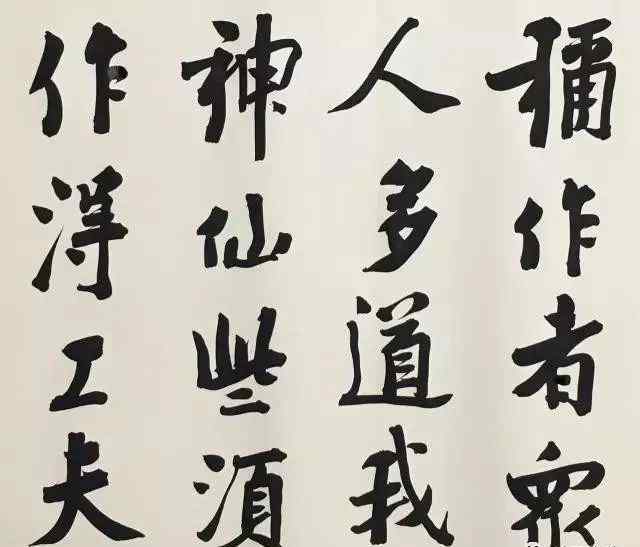 稱作者眾
人多道我
神仙些須
作得工夫